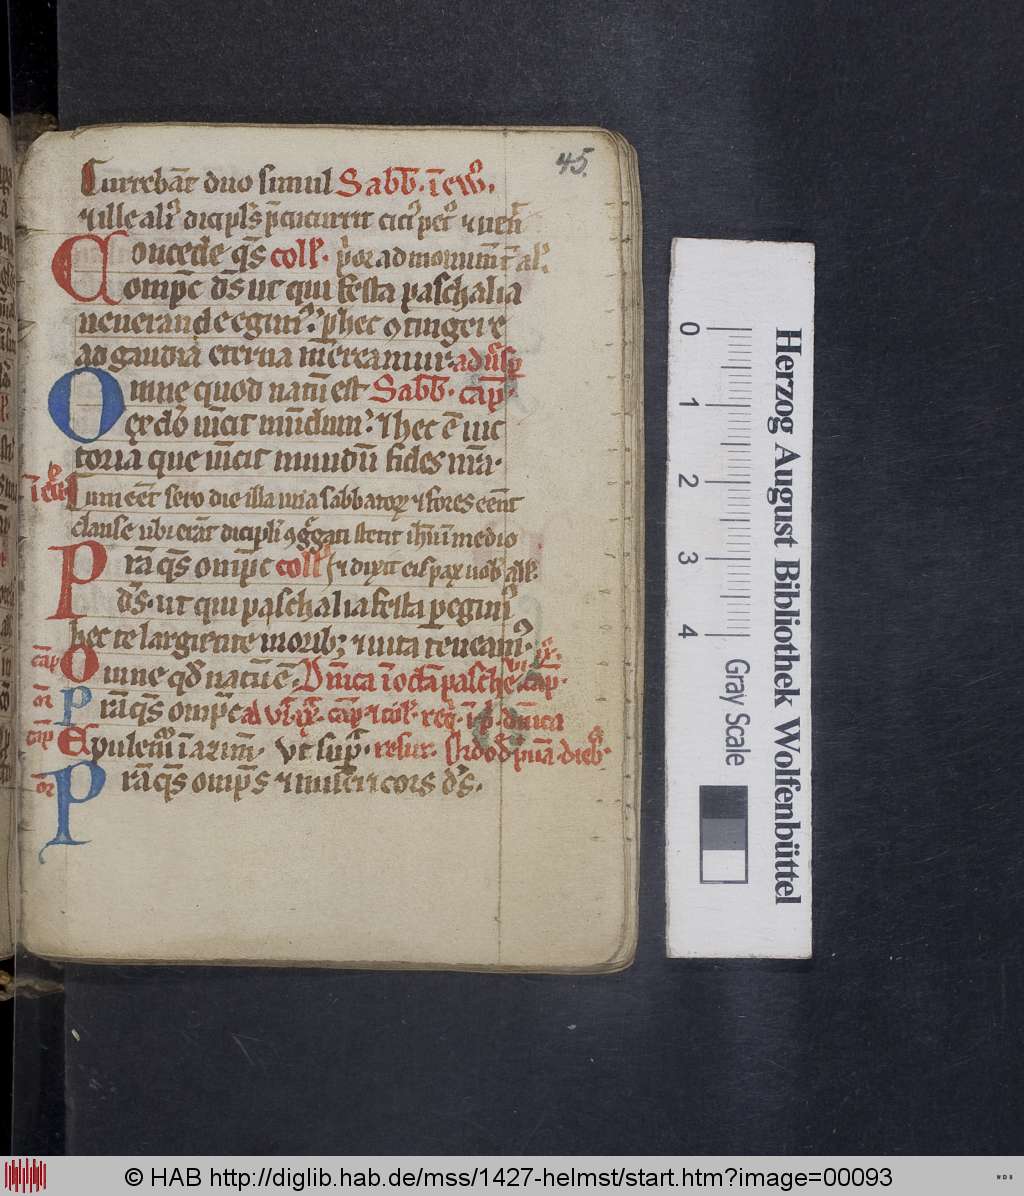 45.
Currebāt duo simul Sabb. ī ew.
⁊ ille aliꝰ dicipls p̄cucurrit citiꝰ pet° ⁊ ueīt
Concede qs̄ coll. prior ad monumt̄ al'.
omp̄c ds̄ ut qui festa paschalia
uenerando egimꝰ. p hec ꝯtingere
ad gaudia eterna mereamur. ad usp̄
Omne quod natū est Sabb. cap̄.
ex dō uīcit mūdum. ⁊ hec ē uic
toria que uīcit mundū fides nr̄a.
ī ew Cum eēt sero die illa una sabbatorꝝ ⁊ fores eēnt
clause ubi erāt dicipli ꝯgg̃ati stetit ih̄c ī medio
Pr̄a qs̄ omp̄c coll ⁊ dixit eis pax uob all'.
ds̄. ut qui paschalia festa pegimꝰ
hec te largiente morib; ⁊ uita teneamꝰ.
cap̄ Omne qd̄ natū ē. Dn̄ica ī octā pasche. cap̄.
or̄ Pr̄a qs̄ omp̄c ad vī. cap̄ ⁊ col'. req̄. ī p̄. dn̄ica
cap̄ Epulemꝰ ī azim. Ut sup̄. resur.
or̄ Pr̄a qs̄ omp̄s ⁊ misers ds̄.
0 1 2 3 4
Gray Scale
Herzog August Bibliothek Wolfenbüttel
© HAB http://diglib.hab.de/mss/1427-helmst/start.htm?image=00093